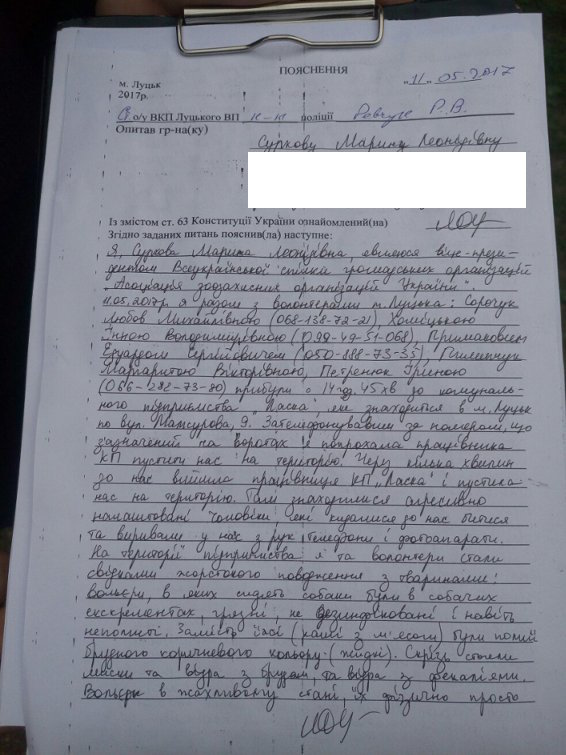 ПОЯСНЕННЯ
м. Луцьк „11" 05.2017
2017р.
о/у ВКП Луцького ВП поліції Р.В.
Опитав гр-на(ку)
Суркову Марину Леонідівну
Із змістом ст. 63 Конституції України ознайомлений(на)
Згідно заданих питань пояснив(ла) наступне:
Я, Суркова Марина Леонідівна, являюся віце-прези-
дентом Всеукраїнської спілки громадських організацій
„Асоціація зоозахисних організацій України".
11.05.2017р. я разом з волонтерами м.Луцька: Сорочук
Любов Михайлівною (068-138-72-21), Хомицькою
Інною Володимирівною (099-49-51-068), Примаковим
Едуардом Сергійовичем (050-888-73-35),
Маргаритою Вікторівною, Петренюк Іриною
(066-282-73-80) прибули о 14год. 45хв до комуналь-
ного підприємства „Ласка", яке знаходиться в м. Луцьк
по вул. Мамсурова, 9. Зателефонувавши за номером, що
зазначений на воротах я попрохала працівника
КП пустити нас на територію. Через кілька хвилин
до нас вийшла працівниця КП „Ласка" і пустила
нас на територію. Там знаходилися агресивно
налаштовані чоловіки, які кидалися до нас битися
та виривали у нас з рук телефони і фотоапарати.
На території підприємства я та волонтери стали
свідками жорстокого поводження з тваринами:
вольєри, в яких сидять собаки були в собачих
екскрементах, грязні, не дезинфіковані і навіть
неполиті. Замість їжі (каші з м'ясом) були помиї
брудного коричневого кольору (рідкі). Скрізь стояли
миски та відра з брудом, та відра з фекаліями.
Вольєри в жахливому стані, їх фізично просто